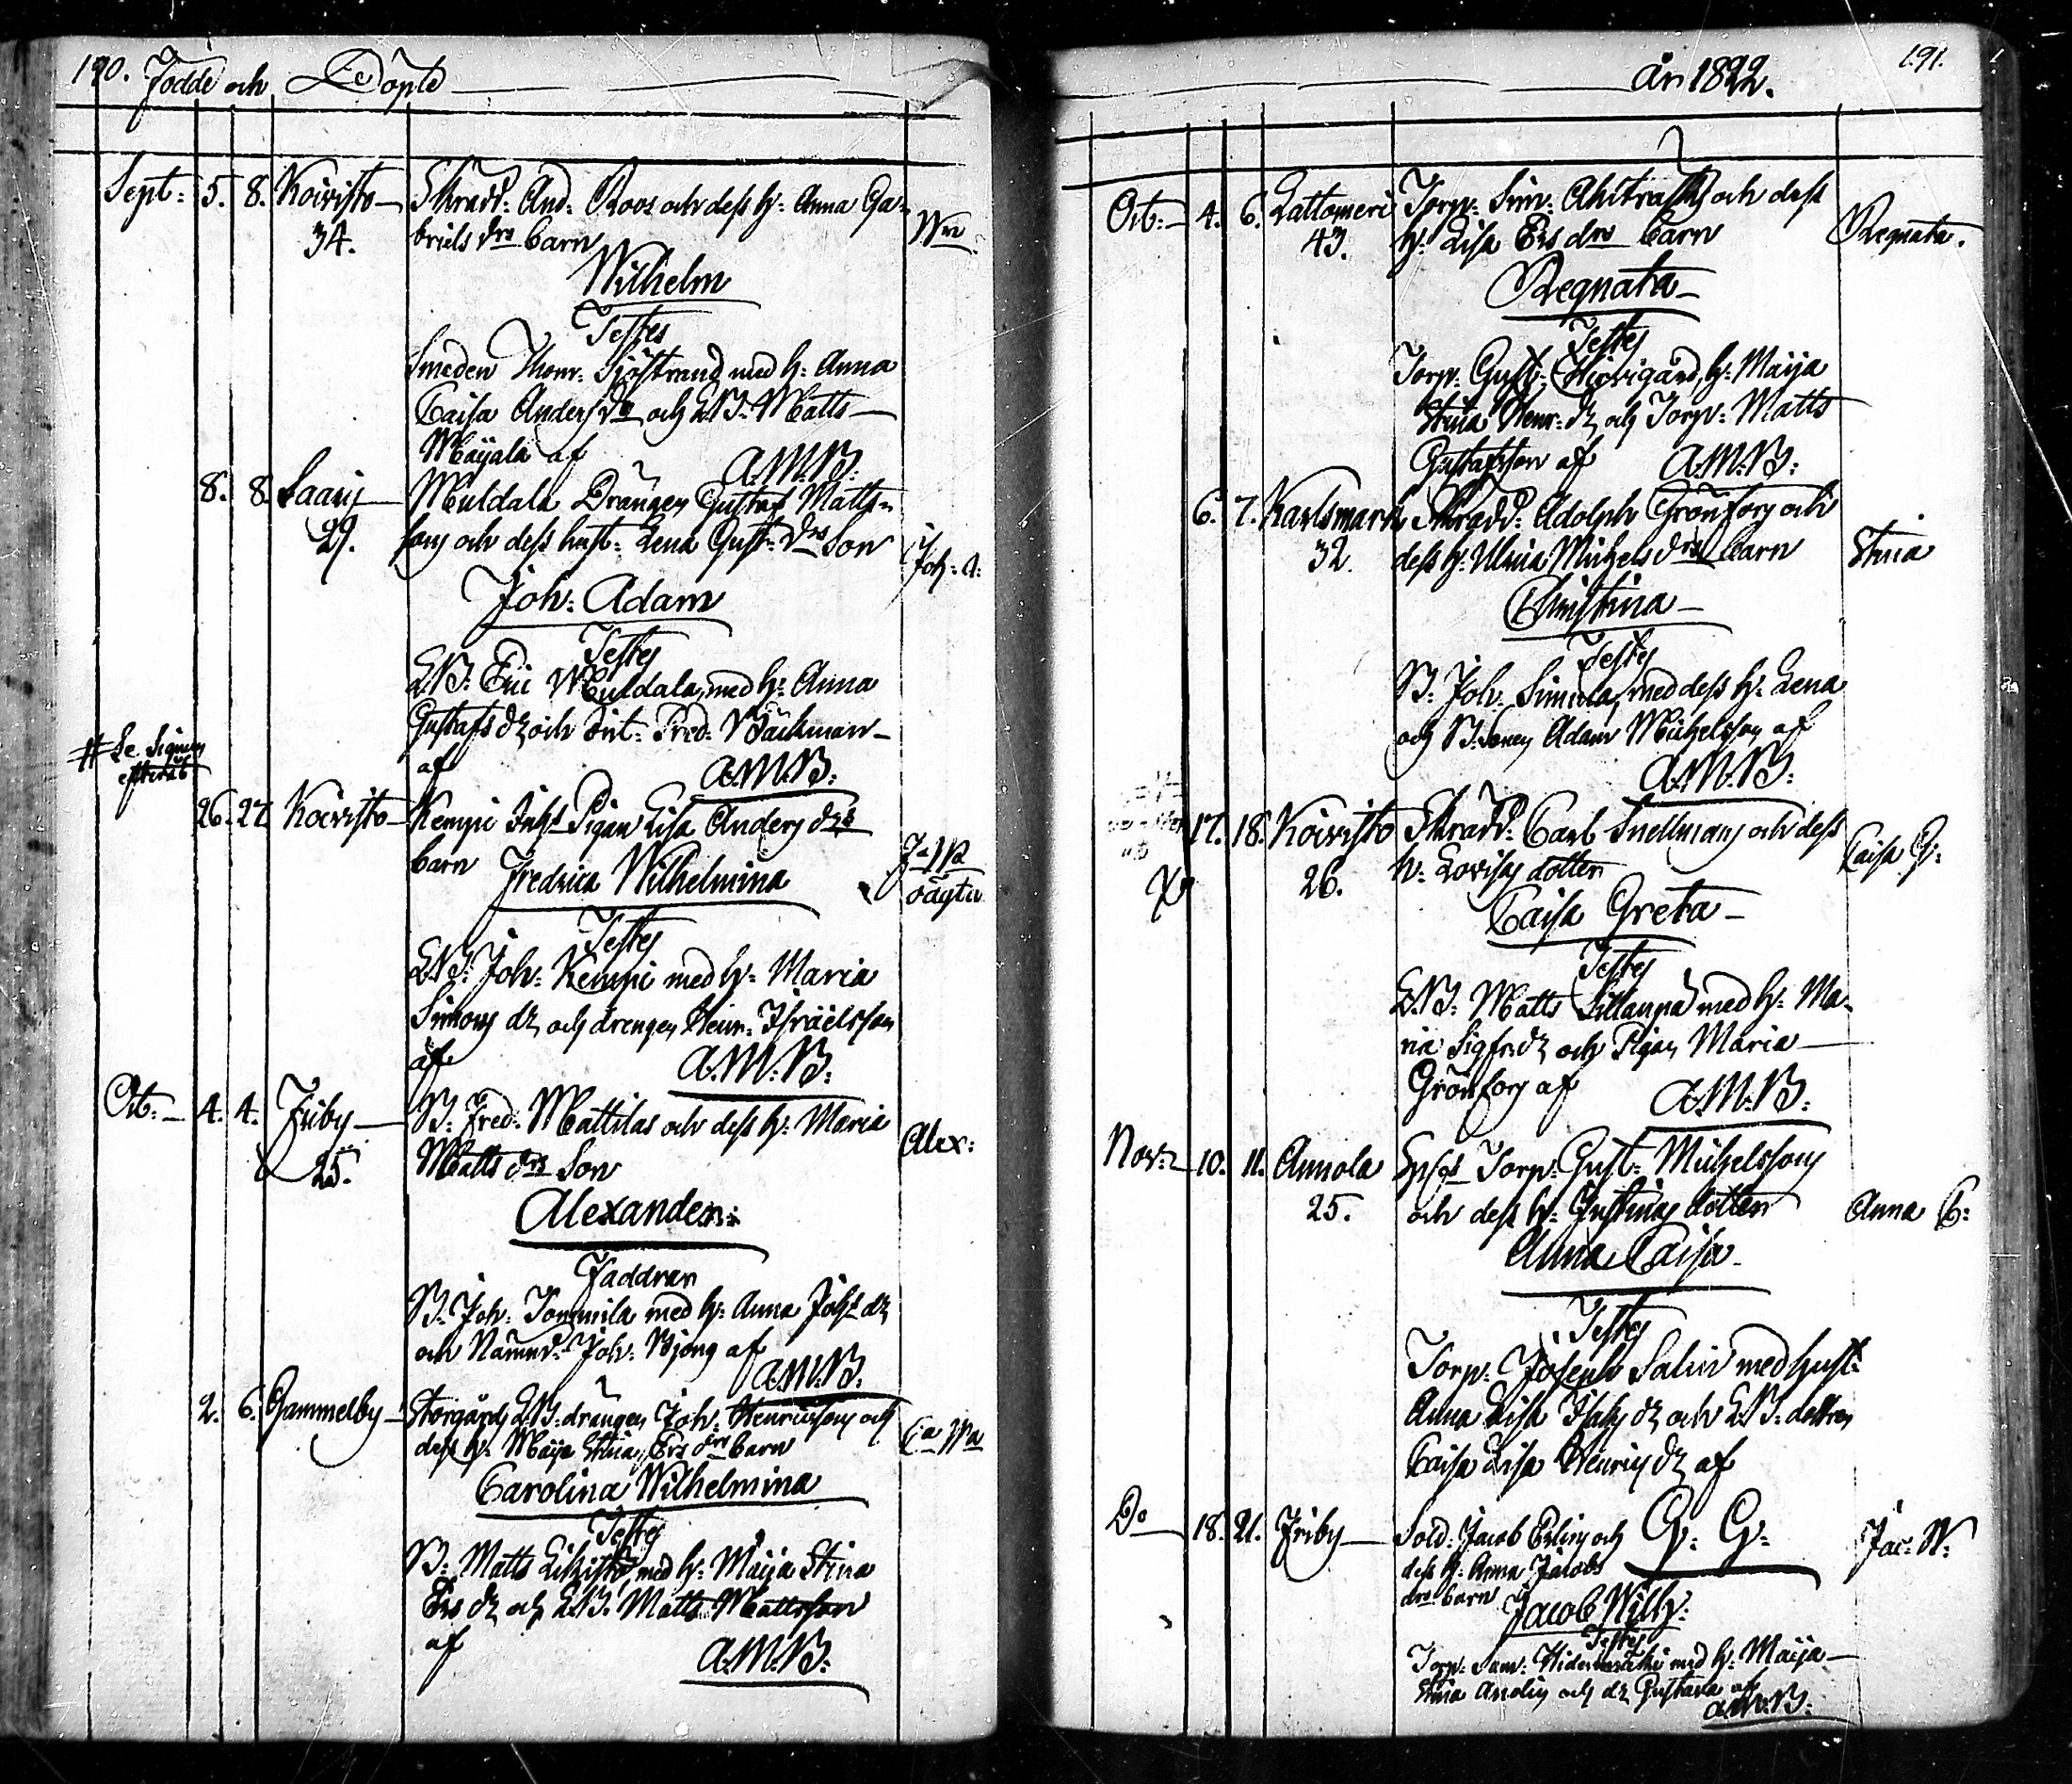 190. Födde och Döpte
Sept: 5. 8. Koivisto Skradd: And: Roos och dess h: Anna Ga-
34. briels drs barn Wm
Wilhelm
Testes
Smeden Thom: Sjöstrand med h: Anna
Caisa Anders dr och LB: Matts
Mäijala af A.M.B:
8. 8. Saaris Muldala Drängen Gustaf Matts-
29. sons och dess hust: Lena Gust: drs Son Joh: A:
Joh: Adam
Testes
LB: Eric Muldala, med h: Anna
Gustafs dr och Fred: Bäckman
af A.M.B:
# Se
26. 27. Koivisto Kempi Inhs Pigan Lisa Anders drs
barn Fredrica Wilhelmina Fa Wa
oägta
Testes
LB: Joh: Kempi med h: Maria
Simons dr och drengen Henr: Israëlsson
af A.M.B:
Oct: 4. 4. Friby B: Fred: Mattilas och dess h: Maria
25. Matts drs Son Alex:
Alexander:
Faddrar
B: Joh: Tommila med h: Anna Johs dr
och Nämnd: Joh: Bjong af
A.M.B:
2. 6. Gammelby Storgårds LB: drängen Joh: Henricssons och
dess h: Maija Stina Ers drs barn Ca Wa
Carolina Wilhelmina
Testes
B: Matts med h: Maija Stina
Ers dr och LB: Matts Mattsson
af A.M.B:
År 1822. 191.
Oct: 4. 6. Lattomeri Torp: Sim: och dess
43. h: Lisa Ers drs barn Regnata.
Regnata
Testes
Torp: Gust: h: Maija
Stina Henr: dr och Torp: Matts
Gustafsson af A.M.B:
6. 7. Karlsmark Skradd: Adolph Grönfors och
32. dess h: Ulrica Michels drs barn Stina
Christina
Testes
B: Joh: Simula, med dess h: Lena
och B: Sonen Adam Michelsson af
A.M.B:
17. 18. Koivisto Skradd: Carl Snellmans och dess
26. h: Lovisas dotter Caisa G:
Caisa Greta
Testes
LB: Matts Sillanpä med h: Ma-
ria Sigfrs dr och Pigan Maria
Grönfors af A.M.B:
Nov: 10. 11. Annola Torp: Gust: Michelssons
25. och dess h: Justinas dotter Anna C:
Anna Caisa
Testes
Torp: Joseph Salin med hust:
Anna Lisa Isaks dr och LB: dottren
Caisa Lisa Henrics dr af
G: G:
Do 18. 21. Friby Sold: Jacob och Jac: W:
dess h: Anna Jacobs
drs barn Jacob Wilh:
Testes
Torp: Sam: med h: Maija
Stina och dr Gustava af
A.M.B: